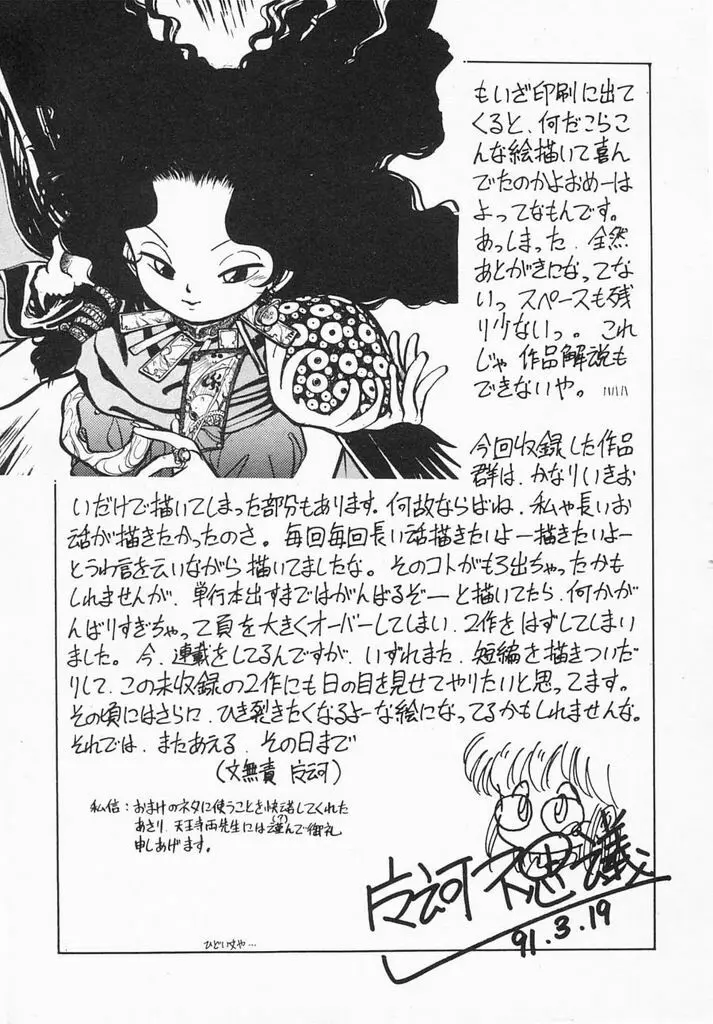 もいざ印刷に出て
くると、何だこらこ
んな絵描いて喜ん
でたのかよおめーは
よってなもんです。
あっしまった、全然
あとがきになってな
いっ スペースも残
り少ないっ。これ
じゃ 作品解説も
できないや。
今回収録した作品
群は、かなりいきお
いだけで描いてしまった部分もあります。何故ならばね、私ゃ長いお
話が描きたかったのさ。毎回毎回長い話描きたいよー描きたいよー
とうわ言を云いながら描いてましたな。そのコトがもろ出ちゃったかも
しれませんが、単行本出すまではがんばるぞーーと描いてたら、何かが
んばりすぎちゃって頁を大きくオーバーしてしまい、2作をはずしてしまい
ました。今、連載をしてるんですが、いずれまた、短編を描きついだ
りして、この未収録の2作にも日の目を見せてやりたいと思ってます。
その頃にはさらに、ひき裂きたくなるよーな絵になってるかもしれませんな。
それでは、またあえる、その日まで
(文無責
私信:おまけのネタに使うことを快諾してくれた
あさり、天王寺両先生には謹んで(?)御礼
申しあげます。
不思議
91.3.19
ひどい文や…